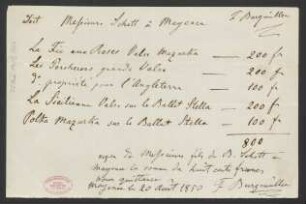 Doit Messieurs Schott à Mayence F Burgmüller
La Fée aux Roses Valse Mazurka — 200 fr
Les Porcherons grande Valse — 200 fr
pour l'Angleterre — 100 fr
La Sicilienne Valse sur le Ballet Stella — 200 fr
Polka Mazurka sur le Ballet Stella — 100 fr
800
reçu de Messieurs fils de B. Schott à
Mayence la somme de huit cents francs
Mayence le 20 Août 1850 F Burgmüller